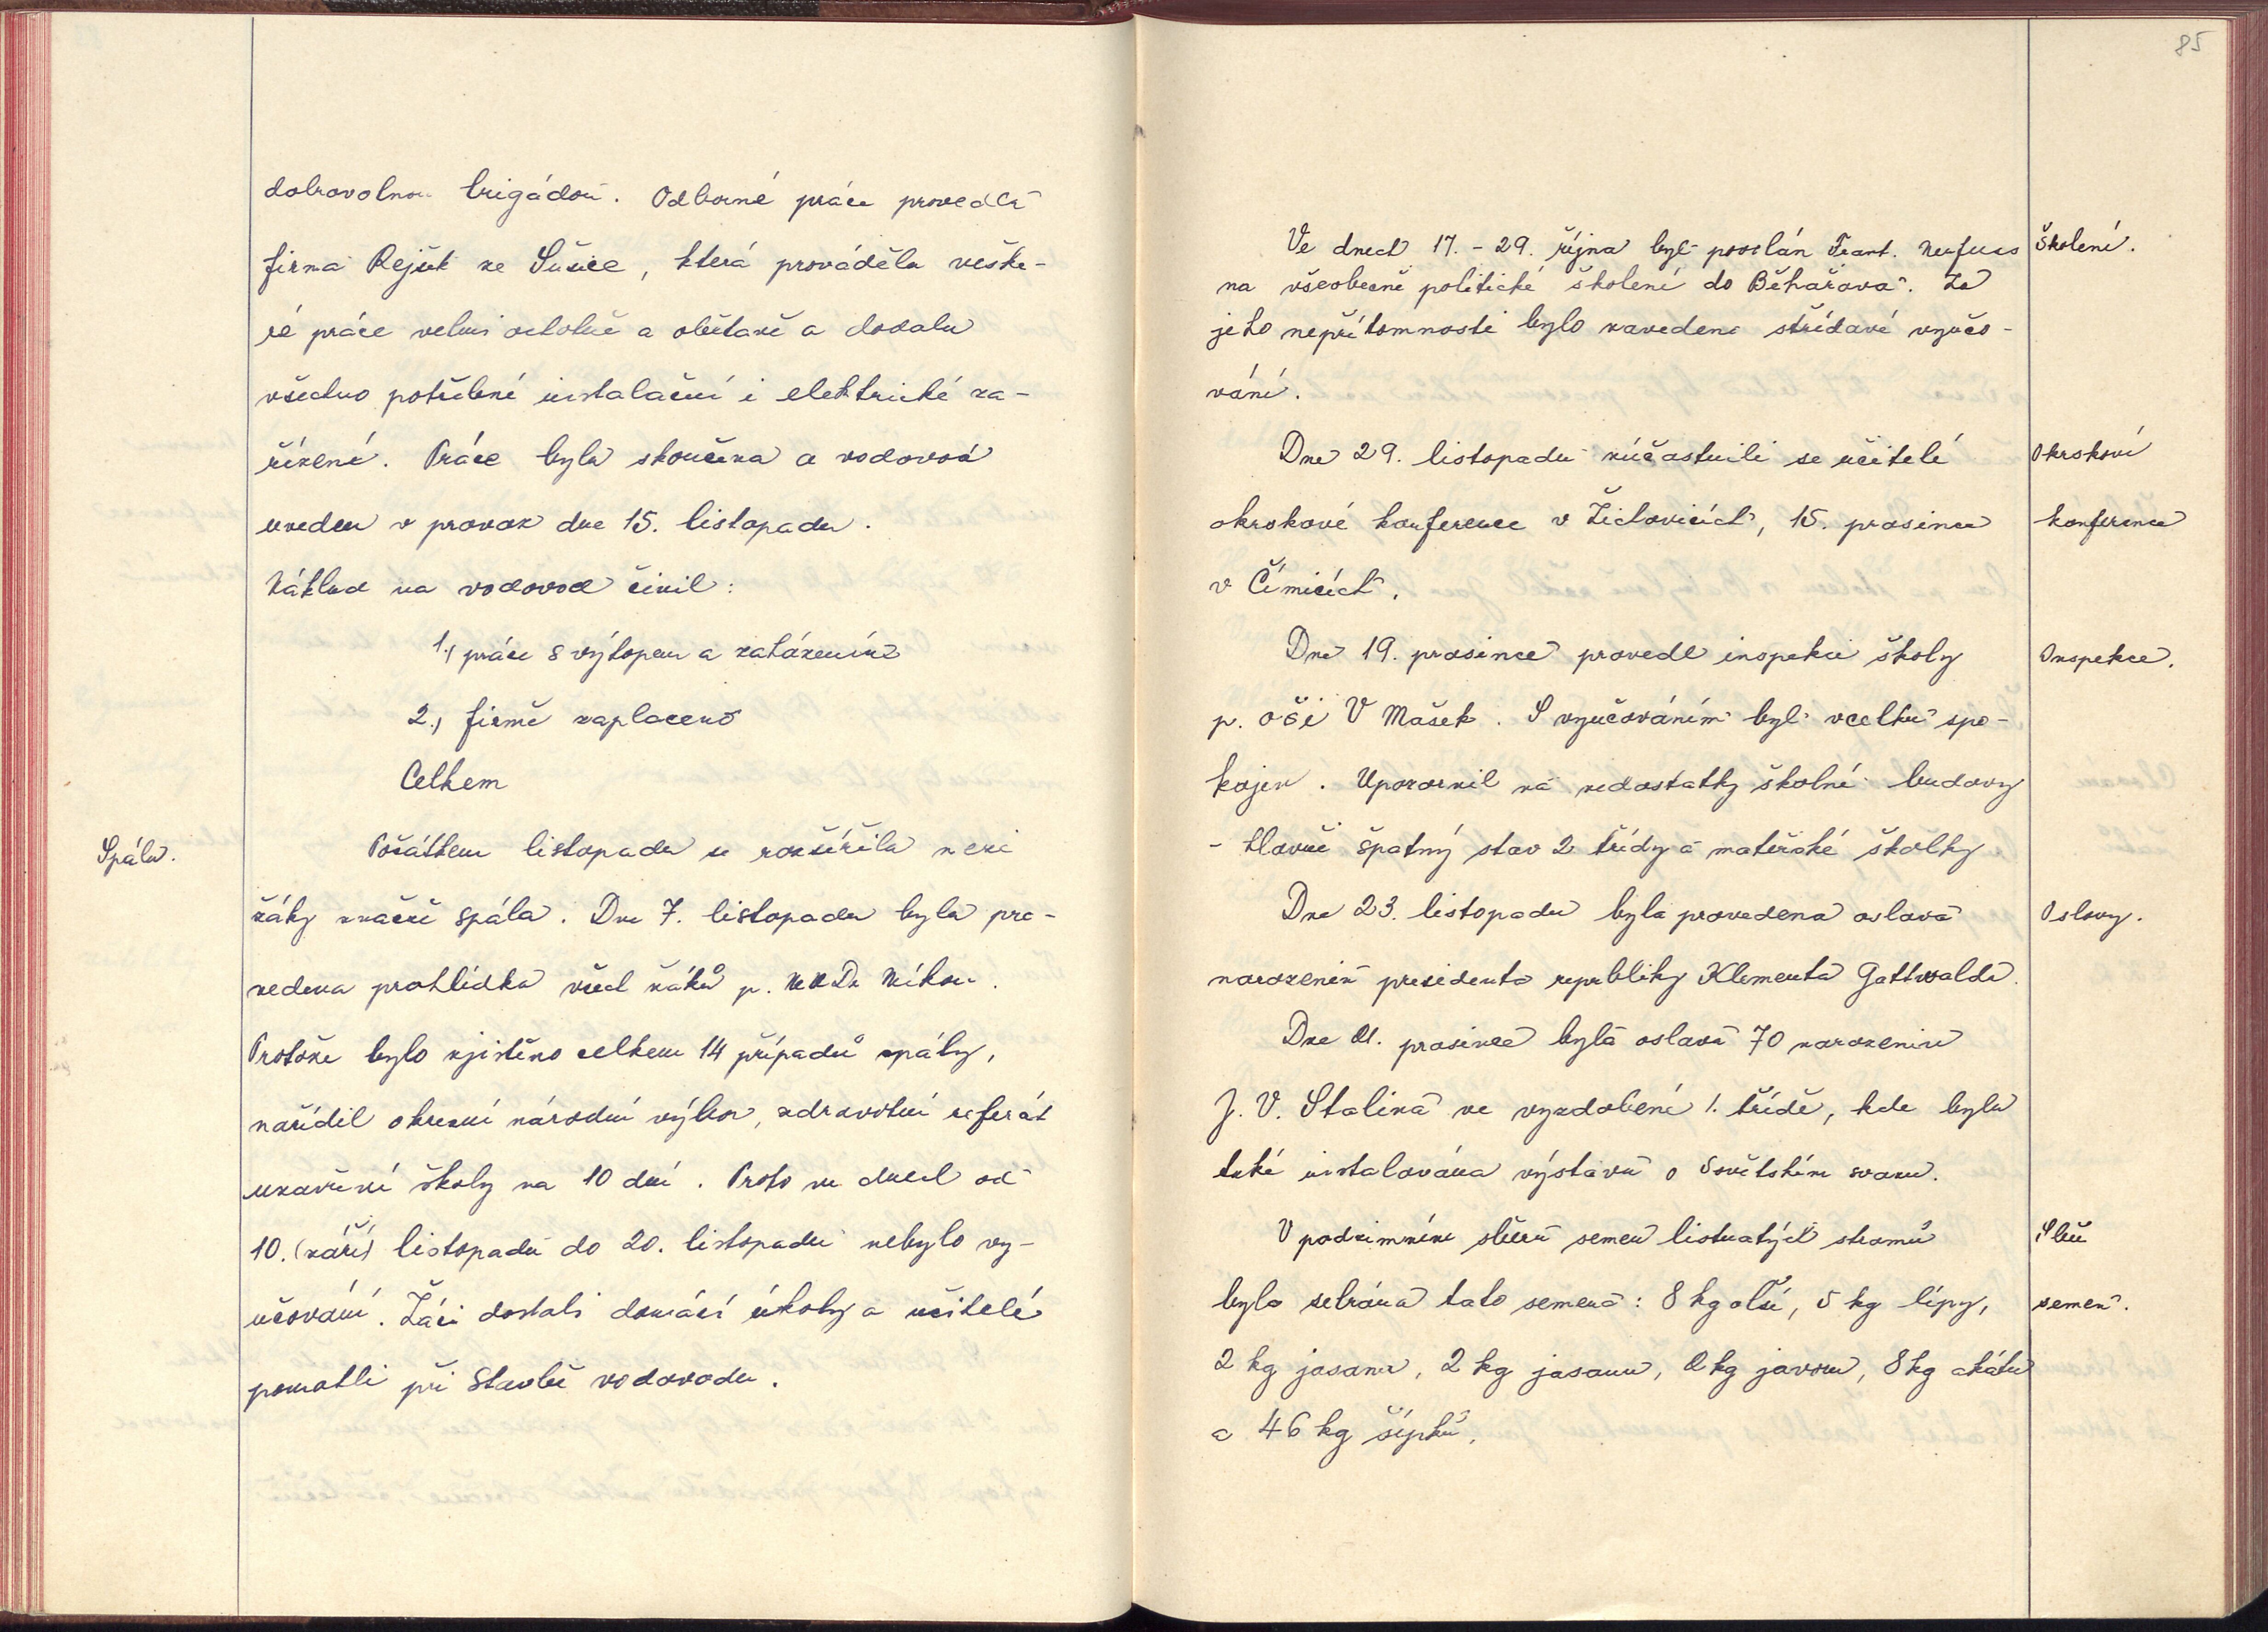 dobrovolnou brigádou. Odborné práce provedla
firma Rejšek ze Sušice, která prováděla veške-
ré práce velmi ochotně a obětavě a dodala
všechno potřebné instalační i elektrické za-
řízení. Práce byla skončena a vodovod
uveden v provoz dne 15. listopadu.
Náklad na vodovod činil:
1., práce s výkopem a zaházením
2., firmě zaplaceno
Celkem
Spála.
Počátkem listopadu se rozšířila mezi
žáky značně spála. Dne 7. listopadu byla pro-
vedena prohlídka všech žáků p. MUDr
Protože bylo zjištěno celkem 14 případů spály,
nařídil okresní národní výbor, zdravotní referát
uzavření školy na 10 dní. Proto ve dnech od
10. (září) listopadu do 20. listopadu nebylo vy-
učování. Žáci dostali domácí úkoly a učitelé
pomohli při stavbě vodovodu.
85
Ve dnech 17. - 29. října byl poslán Frant. Neufuss
Školení.
na všeobecně politické školení do Běhařova. Za
jeho nepřítomnosti bylo zavedeno střídavé vyučo-
vání.
Dne 29. listopadu zúčastnili se učitelé
Okrskové
okrskové konference v Žichovicích, 15. prosince
konference
v Čímicích.
Dne 19. prosince provedl inspekci školy
Inspekce.
p. oši V Mašek. S vyučováním byl vcelku spo-
kojen. Upozornil na nedostatky školní budovy
- hlavně špatný stav 2 třídy a mateřské školky
Dne 23. listopadu byla provedena oslava
Oslavy.
narozenin presidenta republiky Klementa Gottwalda.
Dne 21. prosince byla oslava 70 narozenin
J. V. Stalina ve vyzdobené 1. třídě, kde byla
také instalována výstava o Sovětském svazu.
V podzimním sběru semen listnatých stromů
Sběr
bylo sebrána tato semena: 8 kg olší, 5 kg lípy,
semen.
2 kg jasanu, 2 kg jasanu, 2 kg javoru, 8 kg akátu
a 46 kg šípků.